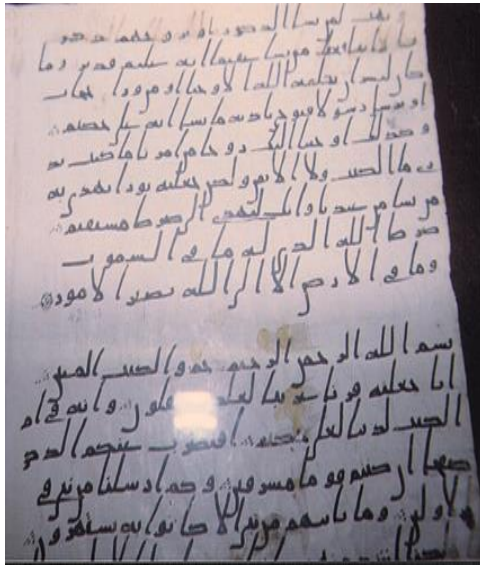 ويهب لمن يشا الذكور او يزوجهم ذكر
نا وانثا ويجعل من يشا عقيما انه عليم قدير وما
كان لبشر ان يكلمه الله الا وحيا او من ورا حجاب
او يرسل رسولا فيوحى باذنه ما يشا انه على حكيم
وكذلك اوحينا اليك روحا من امرنا ما كنت تد
رى ما الكتب ولا الايمن ولكن جعلنه نورا نهدى به
من نشا من عبدنا وانك لتهدى الى صرط مستقيم
صرط الله الذى له ما فى السموت
وما فى الارض الا الى الله تصير الامور
بسم الله الرحمن الرحيم حم والكتب المبين
انا جعلنه قرنا عربيا لعلكم تعقلون وانه فى ام
الكتب لدينا لعلى حكيم افنضرب عنكم الذكر
صفحا ان كنتم قوما مسرفين وكم ارسلنا من نبى فى
الاولين وما ياتيهم من نبى الا كانوا به يستهزون